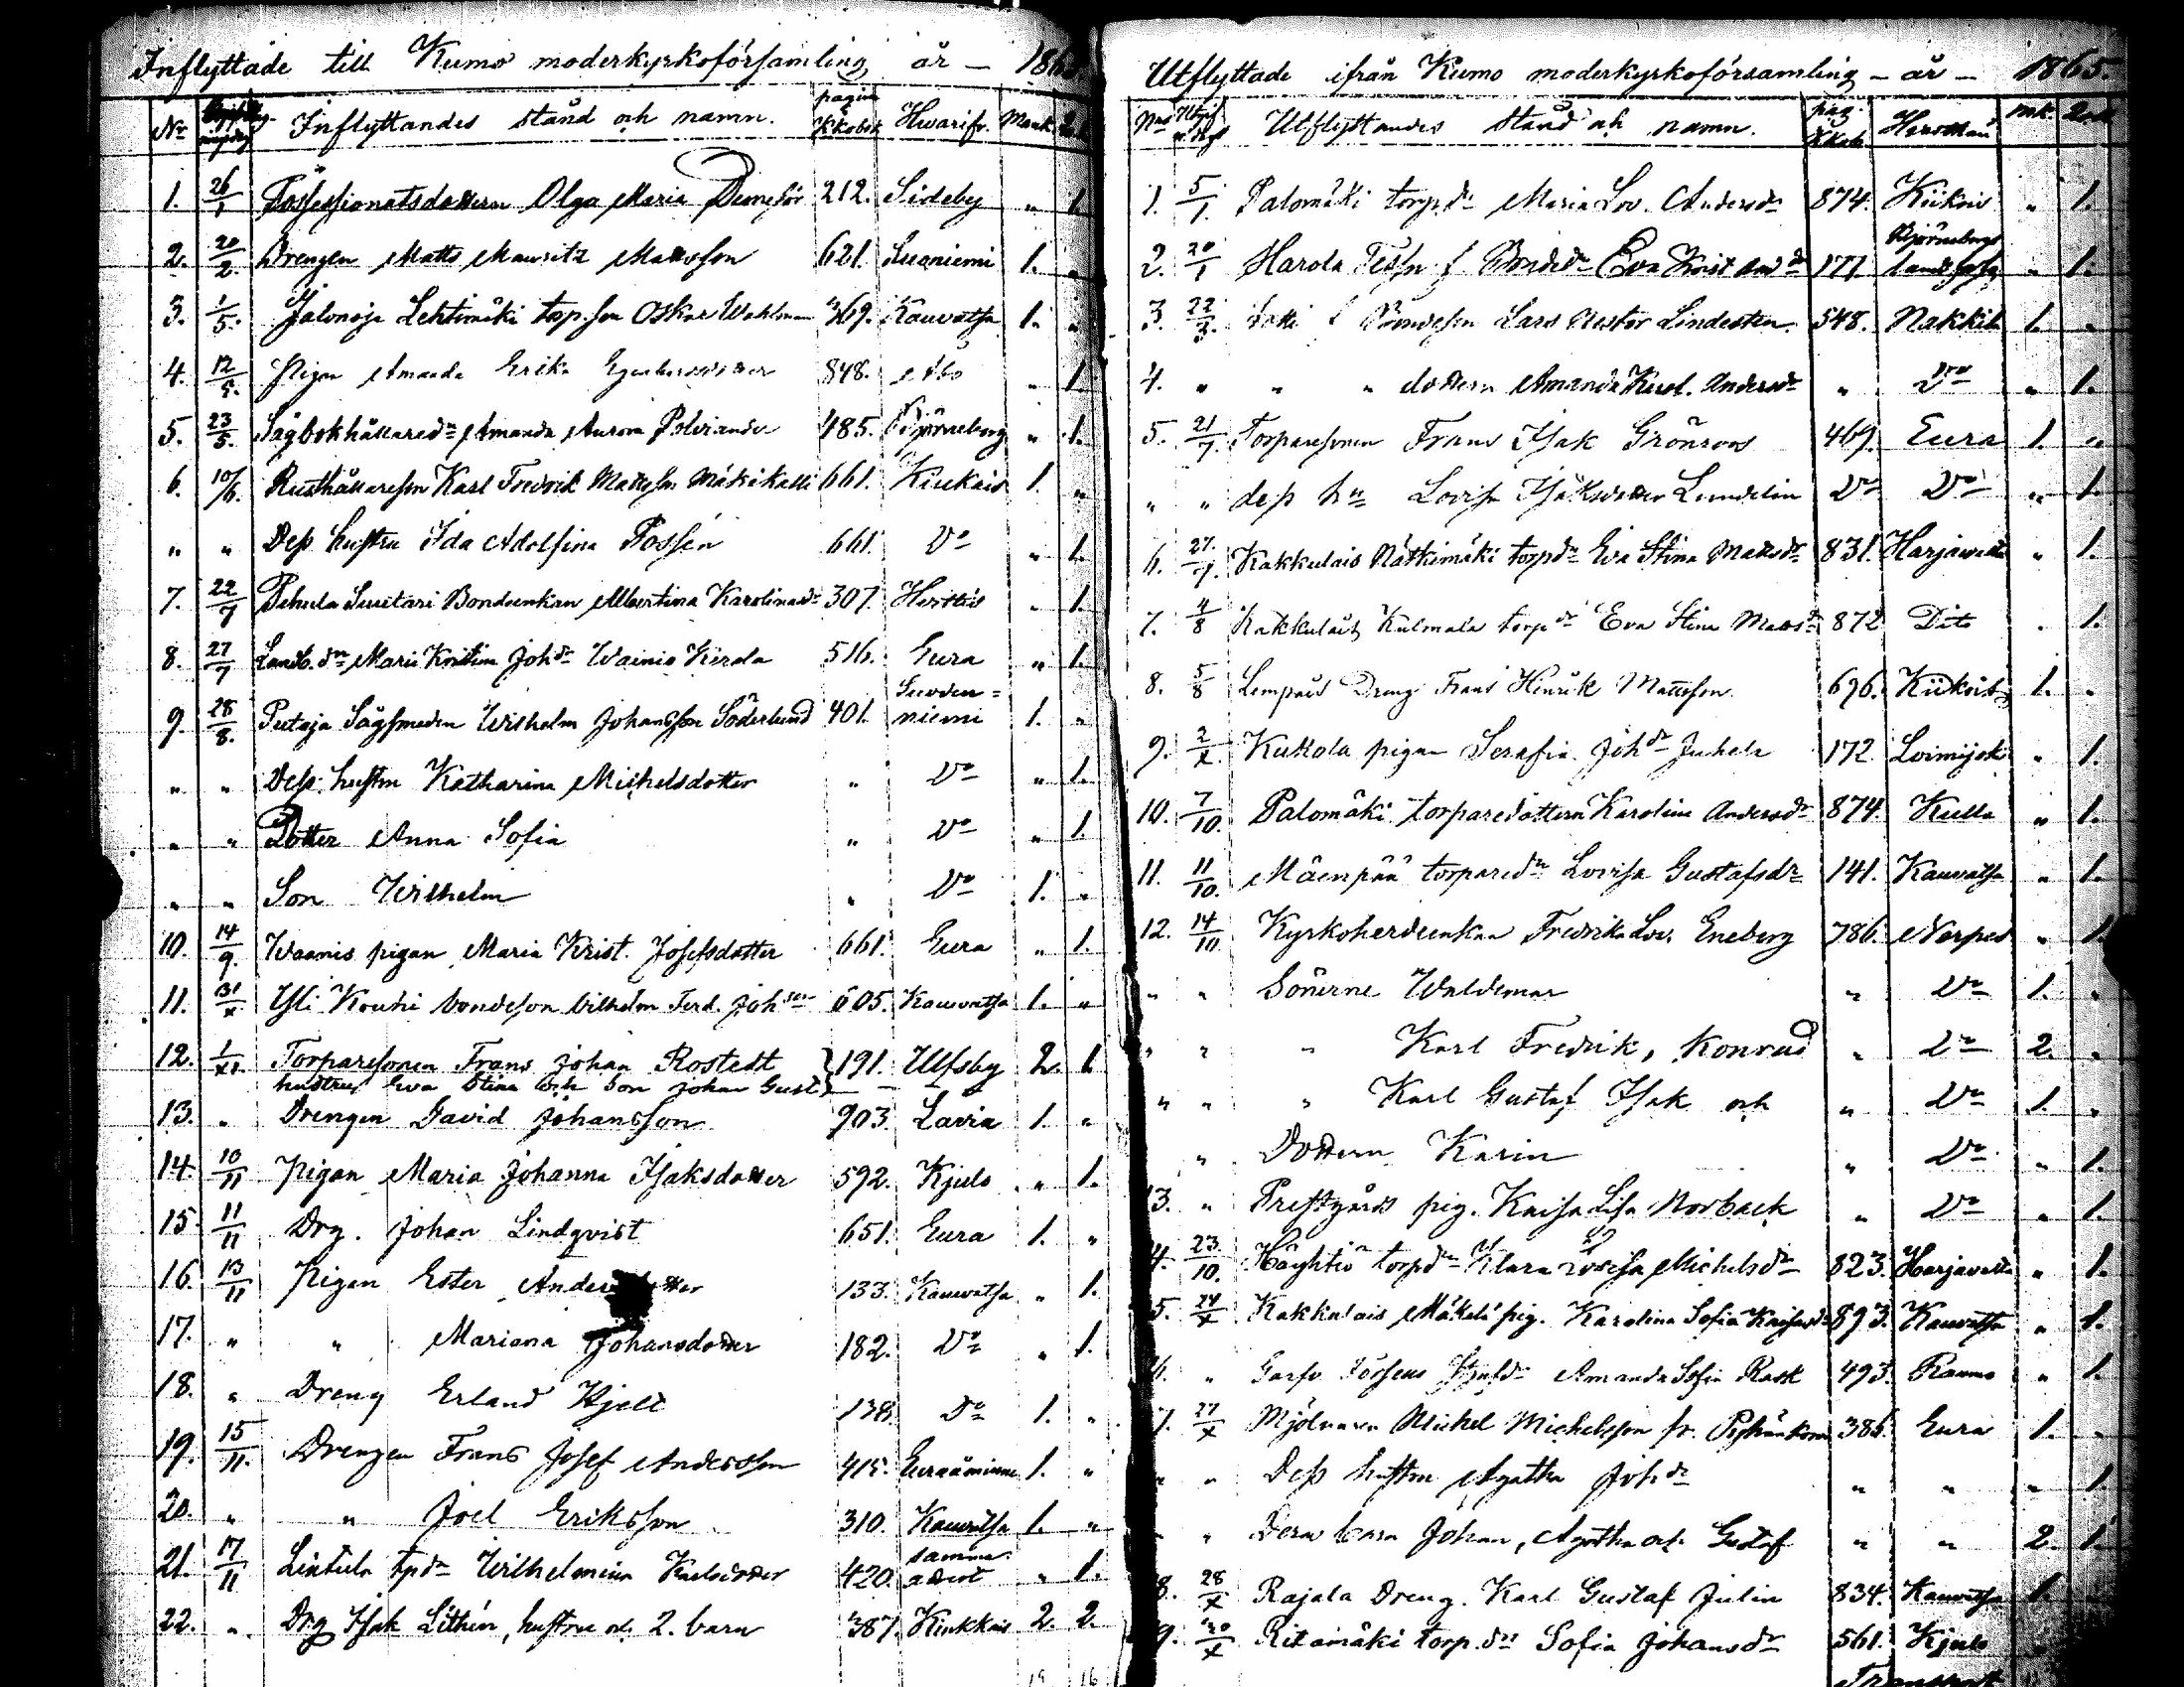 Inflyttade till Kumo moderkyrkoförsamling år – 1865.
No Inflyttandes stånd och namn. pagina Kkobok Hwarifr. Mank.
1. 26/1 Possessionatsdottern Olga Maria 212. Sideby " 1.
2. 20/2 Drengen Matts Mauritz Mattsson 621. Luoniemi 1. "
3. 1/5. Jalonoja Lehtimäki torp.son Oskar Wahlman 369. Kauvatsa 1. "
4. 12/5. Pigan Amanda Erika 848. Åbo " 1.
5. 23/5. Sågbokhållaredr Amanda Aurora Polviander 485. Björneborg " 1.
6. 10/6. Rusthållareson Karl Fredrik Mattsson Mäkikalli 661. Kiukais 1. "
" " Dess hustru Ida Adolfina Possén 661. Do " 1.
7. 22/7 Pehula Suutari Bondeenkan Albertina Karolinadr 307. " 1.
8. 27/7 Landb. dr Maria Kristina Johdr Wainio Kierola 516. Eura " 1.
9. 28/8. Putaja Sågsmeden Wilhelm Johansson Söderlund 401. Suoden=niemi 1. "
" " Dess hustru Katharina Michelsdotter " Do " 1.
" " Dotter Anna Sofia " Do " 1.
" " Son Wilhelm " Do 1. "
10. 14/9. Waanis pigan Maria Krist. Josefsdotter 661. Eura " 1.
11. 31/x Yli Kouhi bondeson Vilhelm Ferd. Johsson 605. Kauvatsa 1. "
12. 1/XI. Torparesonen Frans Johan Rostedt 191. Ulfsby 2. 1.
hustru Eva Stina och son Johan Gust.
13. " Drengen David Johansson 903. Lavia 1. "
14. 10/11 Pigan Maria Johanna Isaksdotter 592. Kjulo " 1.
15. 11/11 Drg. Johan Lindqvist 651. Eura 1. "
16. 13/11 Pigan Ester 133. Kauvatsa " 1.
17. " " Mariana Johansdotter 182. Do " 1.
18. " Dreng Erland Hjelt 138. Do 1. "
19. 15/11. Drengen Frans Josef Andersson 415. Euraåminne 1. "
20. " " Joel Eriksson 310. Kauvatsa 1. "
21. 17/11 Lintula tpdr Wilhelmina Karlsdotter 420. samma " 1.
22. " Drg Isak Lithén, hustru och 2. barn 387. Kiukkais 2. 2.
19 16
Utflyttade ifrån Kumo moderkyrkoförsamling – år – 1865.
Utflyttandes stånd och namn. pag. Kkob mk.
1. 5/1. Palomäki torp.dr Maria Lov. Andersdr 874. Kiikois " 1.
2. 20/1 Harola Bondedr Eva Krist. Anddr 177. Björneborgs landsförs. " 1.
3. 22/3. Bondeson Lars Nestor Lindesten 548. Nakkila 1. "
4. " " " dottern Amanda Karol. Andersdr " Dro " 1.
5. 21/7. Torparesonen Frans Isak Grönroos 469. Eura 1. "
" " dess hu Lovisa Isaksdotter Lundelin Do Do " 1.
6. 27/7. Kakkulais Nätkimäki torpdr Eva Stina Mattsdr 831. Harjavalta " 1.
7. 4/8 Kakkulais Kulmala torp dr Eva Stina Mattsdr 872 Dito " 1.
8. 5/8 Lempais Dreng Frans Henrik Mattsson 676. Kiikois 1. "
9. 2/x. Kukola pigan Serafia Johdr Juhela 172. Loimijoki " 1.
10. 7/10. Palomäki torparedottern Karolina Andersdr 874. Kulla " 1.
11. 11/10. Mäenpää torparedr Lovisa Gustafsdr 141. Kauvatsa " 1.
12. 14/10 Kyrkoherdeenkan Fredrika Lov. Eneberg 786. Nerpes " 1.
" " Sönerne Waldemar " Do 1. "
" " " Karl Fredrik, Konrad " Do 2. "
" " " Karl Gustaf Isak och " Do 1. "
" Dottern Karin " Do " 1.
13. " Prestgårds pig. Kaisa Lisa Norback " Do " 1.
4. 23/10. Häyhtiö torpdr Klara Lovisa Michelsdr 823. Harjavalta " 1.
5. 24/x Kakkulais Mäkelä pig. Karolina Sofia 893. Kauvatsa " 1.
6. " Amanda Sofia Rask 493. Raumo " 1.
7. 27/x Mjölnaren Michel Michelsson fr. 386. Eura 1. "
" " Dess hustru Agatha Johdr " " " 1.
" Dera barn Johan, Agatha och Gustaf " " 2. 1.
8. 28/x Rajala Dreng. Karl Gustaf Julin 834. Kauvatsa 1. "
9. 30/x Ritamäki torp.dr Sofia Johansdr 561. Kjulo
Transport